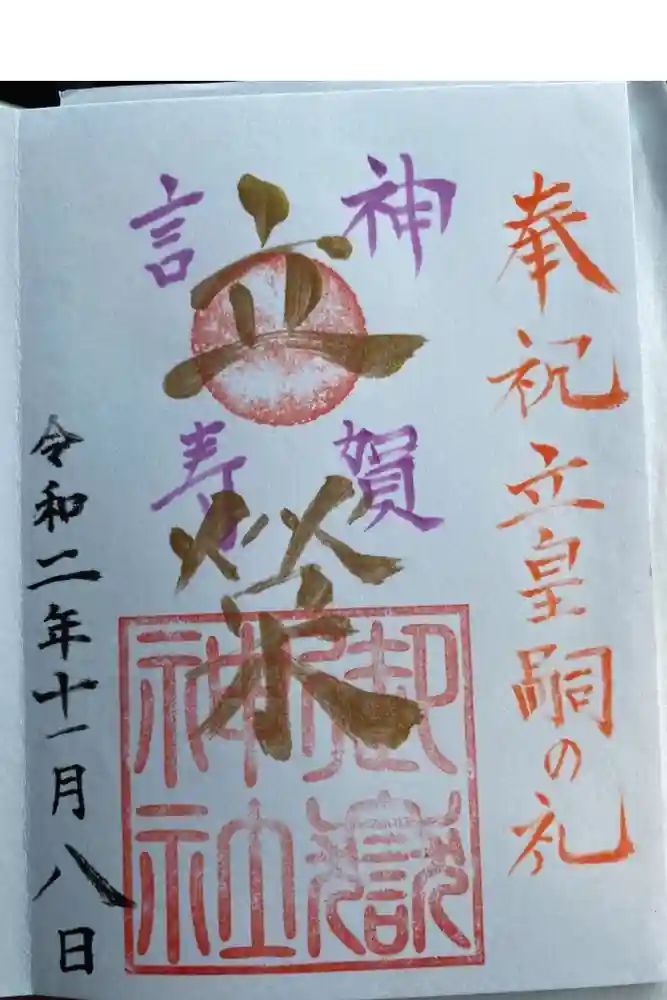 奉祝立皇嗣の礼
神賀
言寿
立榮
御嶽
神社
令和二年十一月八日